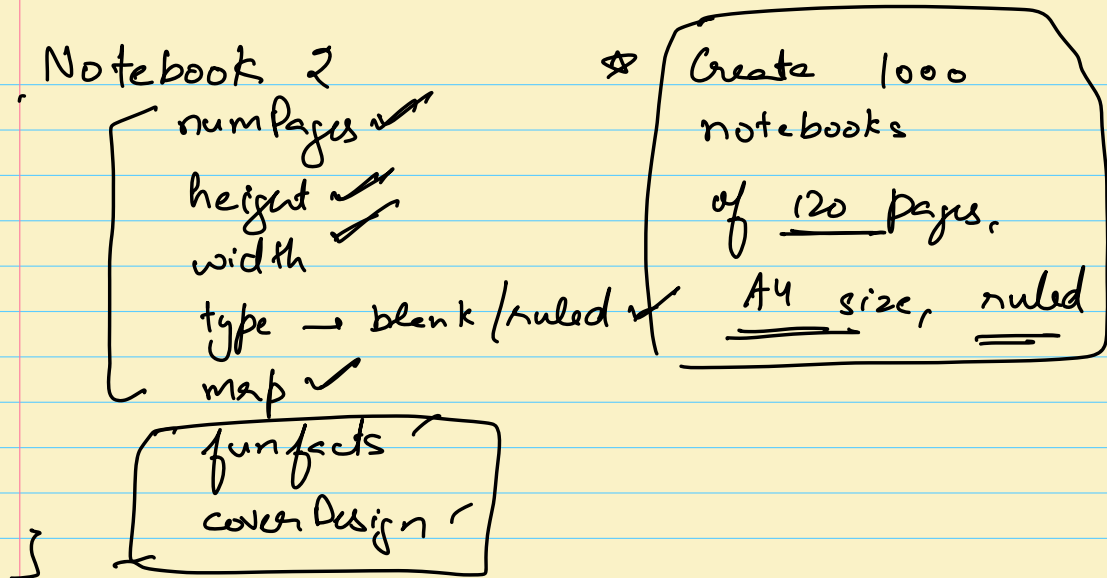 Notebook {
numPages
height
width
type → blank/ruled
map
funfacts
coverDesign
}
☆ Create 1000
notebooks
of 120 pages,
A4 size, ruled